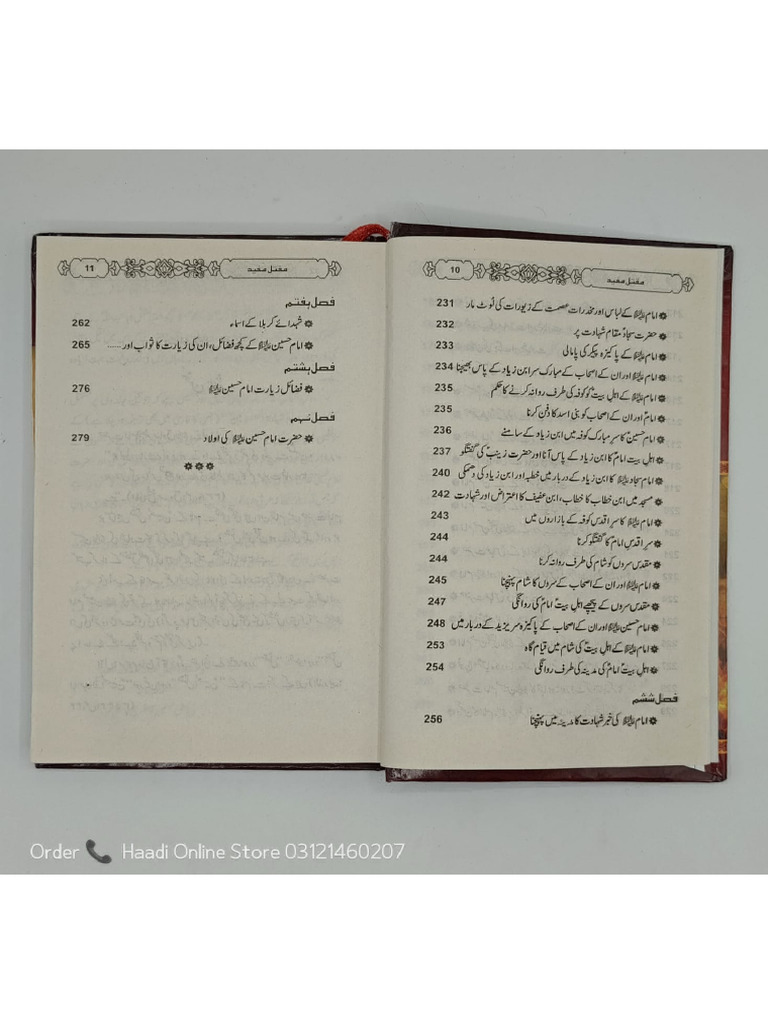 مقتل مفید
10
❁ امام علیہ السلام کے لباس اور مخدرات عصمت کے زیورات کی لوٹ مار 231
❁ حضرت سجادؑ مقام شہادت پر 232
❁ امام علیہ السلام کے پاکیزہ پیکر کی پامالی 233
❁ امام علیہ السلام اور ان کے اصحاب کے مبارک سر ابن زیاد کے پاس بھیجنا 234
❁ امام علیہ السلام کے اہل بیتؑ کو کوفہ کی طرف روانہ کرنے کا حکم 235
❁ امامؑ اور ان کے اصحاب کو بنی اسد کا دفن کرنا 235
❁ امام حسینؑ کا سر مبارک کوفہ میں ابن زیاد کے سامنے 236
❁ اہل بیت امامؑ کا ابن زیاد کے پاس آنا اور حضرت زینبؑ کی گفتگو 237
❁ امام سجاد علیہ السلام کا ابن زیاد کے دربار میں خطبہ اور ابن زیاد کی دھمکی 240
❁ مسجد میں ابن خطاب کا خطاب، ابن عفیف کا اعتراض اور شہادت 242
❁ امام علیہ السلام کا سر اقدس کوفہ کے بازاروں میں 243
❁ سر اقدس امامؑ کا گفتگو کرنا 244
❁ مقدس سروں کو شام کی طرف روانہ کرنا 244
❁ امام علیہ السلام اور ان کے اصحاب کے سروں کا شام پہنچنا 245
❁ مقدس سروں کے پیچھے اہل بیت امامؑ کی روانگی 247
❁ امام حسین علیہ السلام اور ان کے اصحاب کے پاکیزہ سر یزید کے دربار میں 248
❁ امام علیہ السلام کے اہل بیتؑ کی شام میں قیام گاہ 253
❁ اہل بیت امامؑ کی مدینہ کی طرف روانگی 254
فصل ششم
❁ امام علیہ السلام کی خبر شہادت کا مدینہ میں پہنچنا 256
مقتل مفید
11
فصل ہفتم
❁ شہدائے کربلا کے اسماء 262
❁ امام حسین علیہ السلام کے کچھ فضائل، ان کی زیارت کا ثواب اور ...... 265
فصل ہشتم
❁ فضائل زیارت امام حسین علیہ السلام 276
فصل نہم
❁ حضرت امام حسین علیہ السلام کی اولاد 279
❁❁❁
Order 📞 Haadi Online Store 03121460207